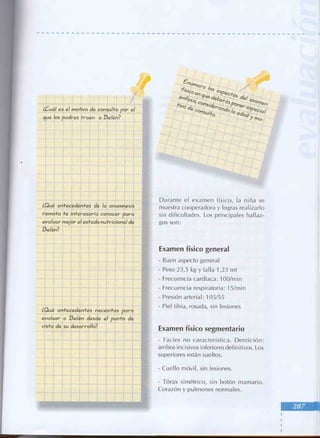 ¿Cuál es el motivo de consulta por el
que los padres traen a Belén?
¿Qué antecedentes de la anamnesis
remota te interesaría conocer para
evaluar mejor el estado nutricional de
Belén?
¿Qué antecedentes necesitas para
evaluar a Belén desde el punto de
vista de su desarrollo?
Enumera los aspectos del examen
físico en que deberás poner especial
énfasis considerando la edad y mo-
tivo de consulta.
Durante el examen físico, la niña se
muestra cooperadora y logras realizarlo
sin dificultades. Los principales hallaz-
gos son:
Examen físico general
- Buen aspecto general
- Peso 23,5 kg y talla 1,23 mt
- Frecuencia cardíaca: 100/min
- Frecuencia respiratoria: 15/min
- Presión arterial: 105/55
- Piel tibia, rosada, sin lesiones
Examen físico segmentario
- Facies no característica. Dentición:
ambos incisivos inferiores definitivos. Los
superiores están sueltos.
- Cuello móvil, sin lesiones.
- Tórax simétrico, sin botón mamario.
Corazón y pulmones normales.
287
evaluación